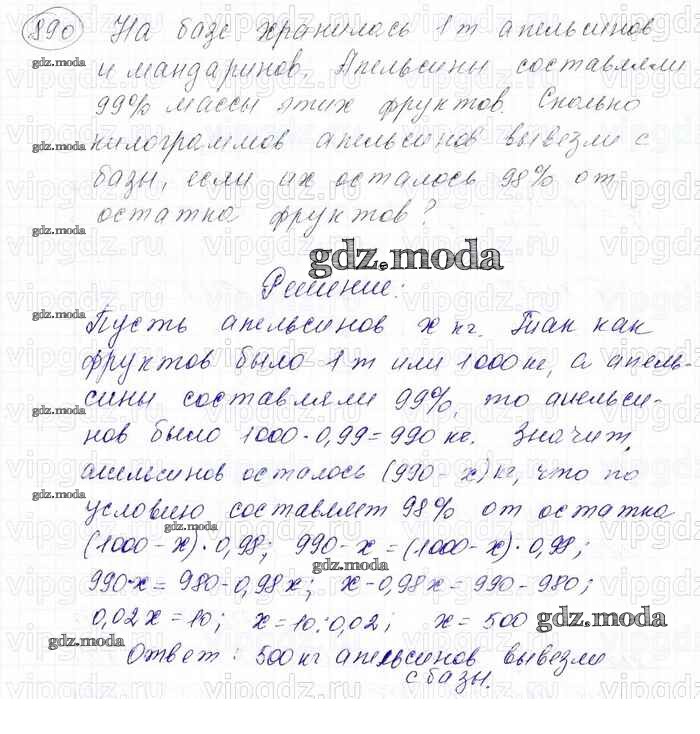 890 На базе хранилось 1 т апельсинов
и мандаринов. Апельсины составляли
99% массы этих фруктов. Сколько
килограммов апельсинов вывезли с
базы, если их осталось 98% от
остатка фруктов?
gdz.moda
Решение:
Пусть апельсинов x кг. Так как
фруктов было 1 т или 1000 кг, а апель-
сины составляли 99%, то апельси-
нов было 1000·0,99=990 кг. Значит,
апельсинов осталось (990-x) кг, что по
условию составляет 98% от остатка
(1000-x)·0,98; 990-x=(1000-x)·0,98;
990-x=980-0,98x; x-0,98x=990-980;
0,02x=10; x=10:0,02; x=500
Ответ: 500 кг апельсинов вывезли
с базы.
gdz.moda
gdz.moda
gdz.moda
gdz.moda
gdz.moda
gdz.moda
gdz.moda
gdz.moda
gdz.moda
vipgdz.ru